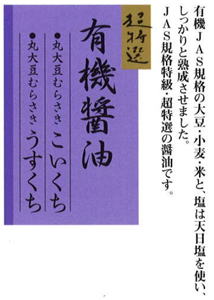 有機JAS規格の大豆・小麦・米と、塩は天日塩を使い、
しっかりと熟成させました。
JAS規格特級・超特選の醤油です。
超特選
有機醬油
●丸大豆むらさき こいくち
●丸大豆むらさき うすくち